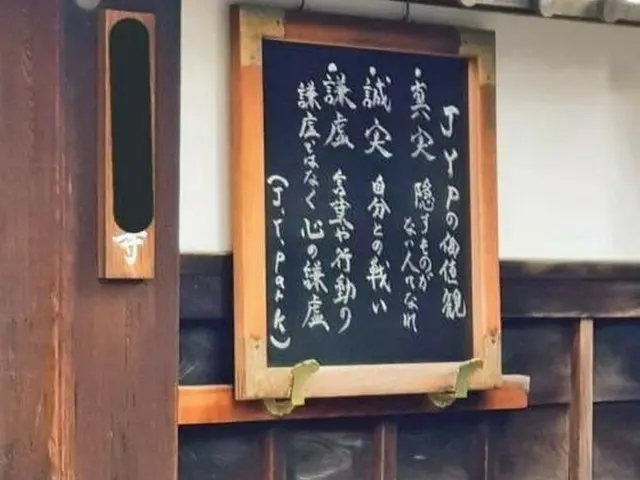 JYPの価値観
・真実 隠すものが
ない人でなれ
・誠実 自分との戦い
・謙虚 言葉や行動の
謙虚ではなく心の謙虚
(J.Y.Park)
寺